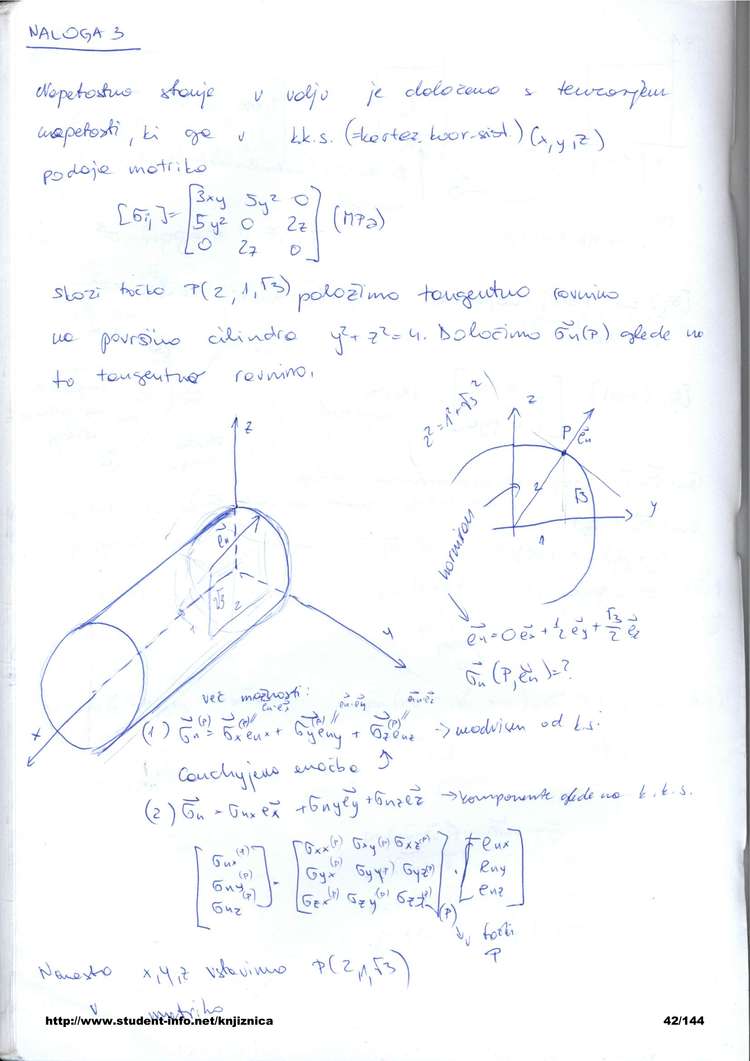 NALOGA 3
Napetostno stanje v volju je določeno s tenzorjem
napetosti, ki ga v k.k.s. (=kartez. koor. sist.) (x,y,z)
podaja matrika
[σij] = [3xy 5y² 0
5y² 0 2z
0 2z 0] (MPa)
skozi točko P(2,1,√3) položimo tangentno ravnino
na površino cilindra y²+z²=4. Določimo σ⃗n(P) glede na
to tangentno ravnino.
2²=1²+√3²
z
P
e⃗n
2
√3
y
1
normiran
e⃗n=0e⃗x+½e⃗y+√3/2 e⃗z
σ⃗n(P,e⃗n)=?
z
e⃗n
√3
2
1
y
x
več možnosti:
e⃗n·e⃗x e⃗n·e⃗y e⃗n·e⃗z
(1) σ⃗n(P)=σ⃗x(P)enx+σ⃗y(P)eny+σ⃗z(P)enz → neodvisen od k.s.
Cauchyjeva enačba
(2) σ⃗n=σnx e⃗x+σny e⃗y+σnz e⃗z → komponente glede na k.k.s.
[σnx(P)
σny(P)
σnz(P)] = [σxx(P) σxy(P) σxz(P)
σyx(P) σyy(P) σyz(P)
σzx(P) σzy(P) σzz(P)](P) · [enx
eny
enz]
v točki
P
Namesto x,y,z vstavimo P(2,1,√3)
v matriko
http://www.student-info.net/knjiznica 42/144